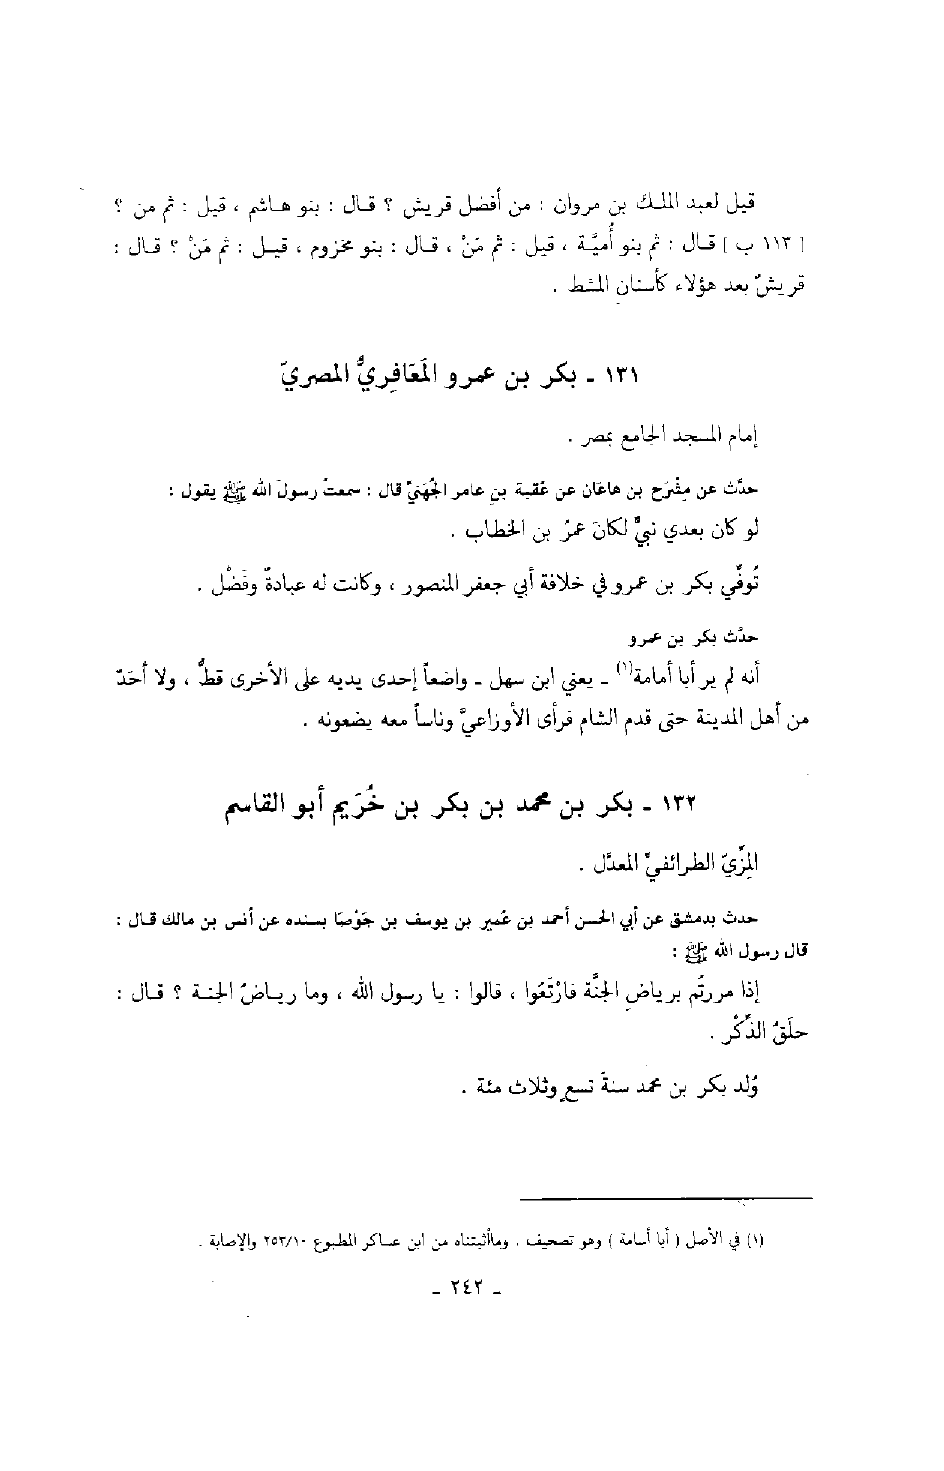 قيل لعبد الملك بن مروان : من أفضل قريش ؟ قال : بنو هاشم ، قيل : ثم من ؟
[ ١١٣ ب ] قال : ثم بنو أُميَّة ، قيل : ثم مَنْ ، قال : بنو مخزوم ، قيل : ثم مَنْ ؟ قال :
قريشٌ بعد هؤلاء كأسنان المشط .
١٣١ ـ بكر بن عمرو المَعَافِريُّ المصريّ
إمام المسجد الجامع بمصر .
حدَّث عن مِشْرَح بن هاعَان عن عُقبة بن عامر الجُهَنيّ قال : سمعتُ رسولَ الله ﷺ يقول :
لو كان بعدي نبيٌّ لكانَ عمرُ بن الخطاب .
تُوفِّي بكر بن عمرو في خلافة أبي جعفر المنصور ، وكانت له عبادةٌ وفَضْل .
حدَّث بكر بن عمرو
أنه لم ير أبا أمامة(١) ـ يعني ابن سهل ـ واضعاً إحدى يديه على الأخرى قطُّ ، ولا أحَدٌ
من أهل المدينة حتى قدم الشام فرأى الأوزاعيَّ وناساً معه يضعونه .
١٣٢ ـ بكر بن محمد بن بكر بن خُرَيم أبو القاسم
المِزِّيّ الطرائفيّ المعدَّل .
حدث بدمشق عن أبي الحسن أحمد بن عُمير بن يوسف بن جَوْصا بسنده عن أنس بن مالك قال :
قال رسول الله ﷺ :
إذا مررتُم برياضِ الجنَّة فارْتَعُوا ، قالوا : يا رسول الله ، وما رياضُ الجنة ؟ قال :
حلَقُ الذِّكْر .
وُلد بكر بن محمد سنةَ تسع وثلاث مئة .
(١) في الأصل ( أبا أسامة ) وهو تصحيف . وماأثبتناه من ابن عساكر المطبوع ٢٥٣/١٠ والإصابة .
ـ ٢٤٢ ـ